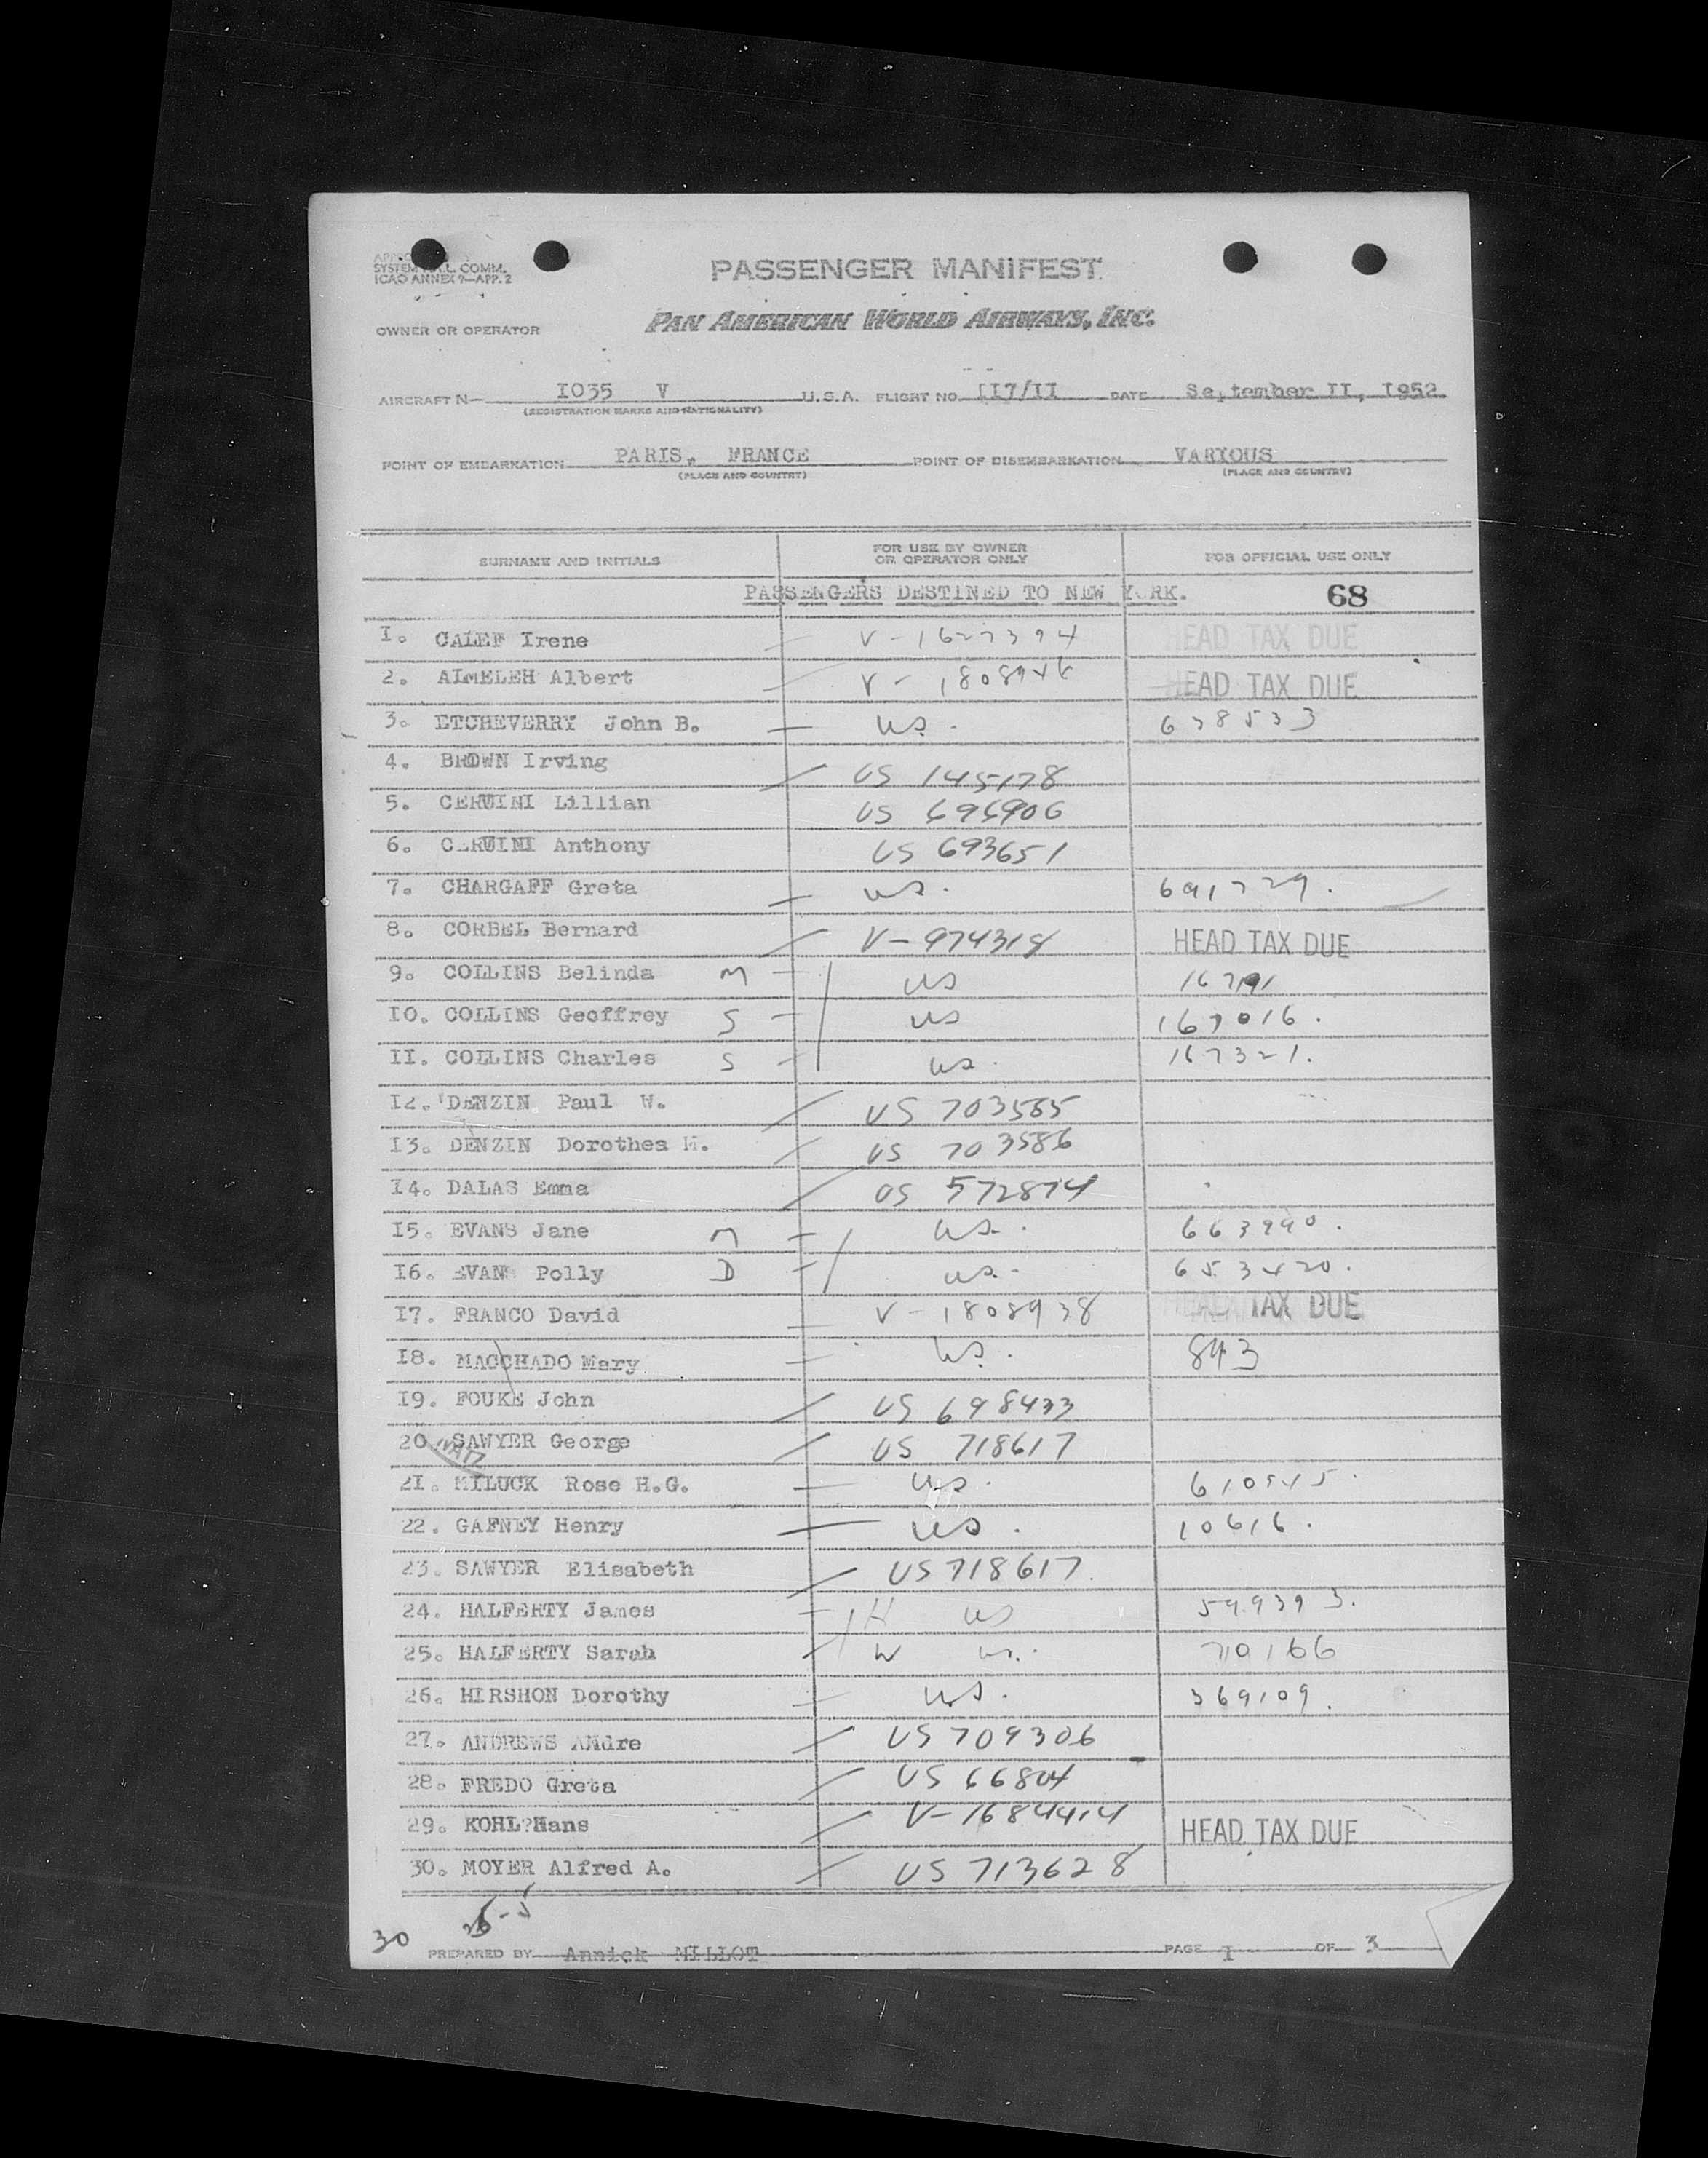 SYSTEM COMM.
ICAO ANNEX 9—APP. 2
PASSENGER MANIFEST
OWNER OR OPERATOR PAN AMERICAN WORLD AIRWAYS, INC.
AIRCRAFT N— I035 V U.S.A. FLIGHT NO. II7/II DATE September II, I952
(REGISTRATION MARKS AND NATIONALITY)
POINT OF EMBARKATION PARIS, FRANCE POINT OF DISEMBARKATION VARIOUS
(PLACE AND COUNTRY) (PLACE AND COUNTRY)
SURNAME AND INITIALS FOR USE BY OWNER OR OPERATOR ONLY FOR OFFICIAL USE ONLY
PASSENGERS DESTINED TO NEW YORK. 68
I. CALEF Irene V-1627394 HEAD TAX DUE
2. ALMELEH Albert V- 1808946 HEAD TAX DUE
3. ETCHEVERRY John B. US. 638533
4. BROWN Irving US 145178
5. CERWINI Lillian US 696906
6. CERWINI Anthony US 693651
7. CHARGAFF Greta US. 691729.
8. CORBEL Bernard V-974318 HEAD TAX DUE
9. COLLINS Belinda M US
I0. COLLINS Geoffrey S US 167016.
II. COLLINS Charles S US. 167321.
I2. DENZIN Paul W. US 703585
I3. DENZIN Dorothea M. US 703586
I4. DALAS Emma US 572874
I5. EVANS Jane M US. 663990.
I6. EVANS Polly D US. 653420.
I7. FRANCO David V-1808938 HEAD TAX DUE
I8. MACCHADO Mary US. 843
I9. FOUKE John US 698433
20. SAWYER George US 718617
2I. MILUCK Rose H.G. US. 610545.
22. GAFNEY Henry US. 10616.
23. SAWYER Elisabeth US 718617.
24. HALFERTY James H US 599393.
25. HALFERTY Sarah W US. 70166
26. HIRSHON Dorothy US. 369109.
27. ANDREWS ANdre US 709306
28. FREDO Greta US 66804
29. KOHL?Hans V-1684414 HEAD TAX DUE
30. MOYER Alfred A. US 713628
30 PREPARED BY Annick MILLOT PAGE I OF 3